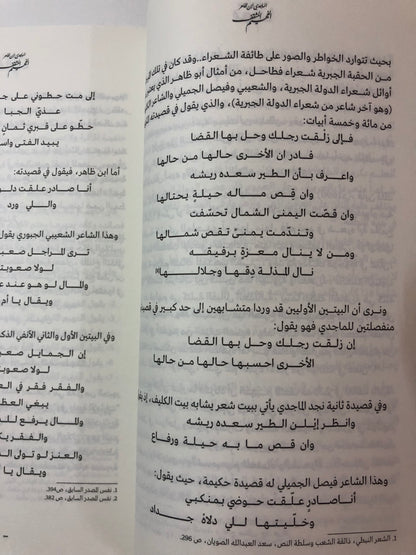 بحيث تتوارد الخواطر والصور على طائفة الشعراء..وقد كان في تلك
من الحقبة الجبرية شعراء فطاحل، من أمثال أبو ظاهر الذي
أوائل شعراء الدولة الجبرية، والشعيبي وفيصل الجميلي والشاعر
(وهو آخر شاعر من شعراء الدولة الجبرية)، والذي يقول في قصيدته
من مائة وخمسة أبيات:
فإلى زلقت رجلك وحل بها القضا
فادر ان الأخرى حالها من حالها
واعرف بأن الطير سعده ريشه
وان قص ماله حيلة يحتالها
وان قصت اليمنى الشمال تحسفت
وتندمت يمنى تقص شمالها
ومن لا ينال معزة برفيقه
نال المذلة دقها وجلالها
ونرى أن البيتين الأوليين قد وردا متشابهين إلى حد كبير في
منفصلتين للماجدي فهو يقول:
إن زلقت رجلك وحل بها القضا
الأخرى احسبها حالها من حالها
وفي قصيدة ثانية نجد الماجدي يأتي ببيت شعر يشابه بيت الكليف، إذ
وانظر إبلن الطير سعده ريشه
وان قص ما به حيلة ورفاع
وهذا الشاعر فيصل الجميلي له قصيدة حكيمة، حيث يقول:
أنا صادر علقت حوضي بمنكبي
وخليتها للي دلاه جداد
1. الشعر النبطي، ذائقة الشعب وسلطة النص، سعد العبدالله الصويان، ص 296.
إلى مت حطوني على
حطو على قبري
يبيد الفتى
أما ابن ظاهر، فيقول في قصيدته:
أنا صادر علقت
واللي ورد
وهذا الشاعر الشعيبي الجبوري يقول
ترى المراجل
لولا
والمال لو هو عند
ويقال يا
وفي البيتين الأول والثاني الألفي
إن الجمايل
لولا
والفقر فقر في
يبغي
والمال يرفع
والفقر
والعنز لو تولى
ويقال يا
1. نفس المصدر السابق، ص394.
2. نفس المصدر السابق، ص 382.